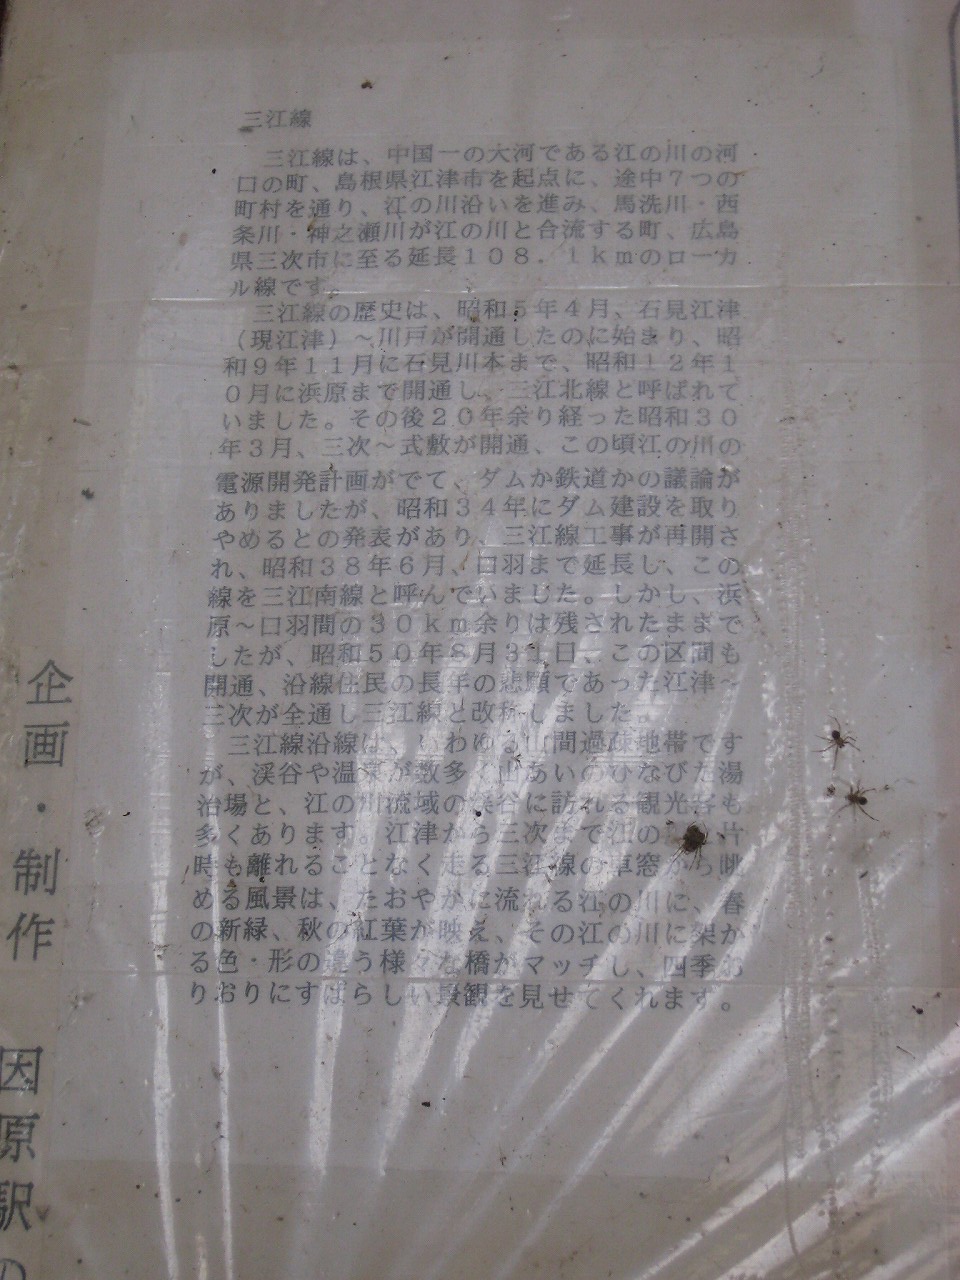 三江線
三江線は、中国一の大河である江の川の河
口の町、島根県江津市を起点に、途中7つの
町村を通り、江の川沿いを進み、馬洗川・西
条川・神之瀬川が江の川と合流する町、広島
県三次市に至る延長108.1kmのローカ
ル線です。
三江線の歴史は、昭和5年4月、石見江津
（現江津）～川戸が開通したのに始まり、昭
和9年11月に石見川本まで、昭和12年1
0月に浜原まで開通し、三江北線と呼ばれて
いました。その後20年余り経った昭和30
年3月、三次～式敷が開通、この頃江の川の
電源開発計画がでて、ダムか鉄道かの議論が
ありましたが、昭和34年にダム建設を取り
やめるとの発表があり、三江線工事が再開さ
れ、昭和38年6月、口羽まで延長し、この
線を三江南線と呼んでいました。しかし、浜
原～口羽間の30km余りは残されたままで
したが、昭和50年8月31日、この区間も
開通、沿線住民の長年の悲願であった江津～
三次が全通し三江線と改称しました。
三江線沿線は、いわゆる山間過疎地帯です
が、渓谷や温泉が数多く山あいのひなびた湯
治場と、江の川流域の渓谷に訪れる観光客も
多くあります。江津から三次まで江の 片
時も離れることなく走る三江線の車窓から眺
める風景は、たおやかに流れる江の川に、春
の新緑、秋の紅葉が映え、その江の川に架か
る色・形の違う様々な橋がマッチし、四季お
りおりにすばらしい景観を見せてくれます。
企画・制作 因原駅の